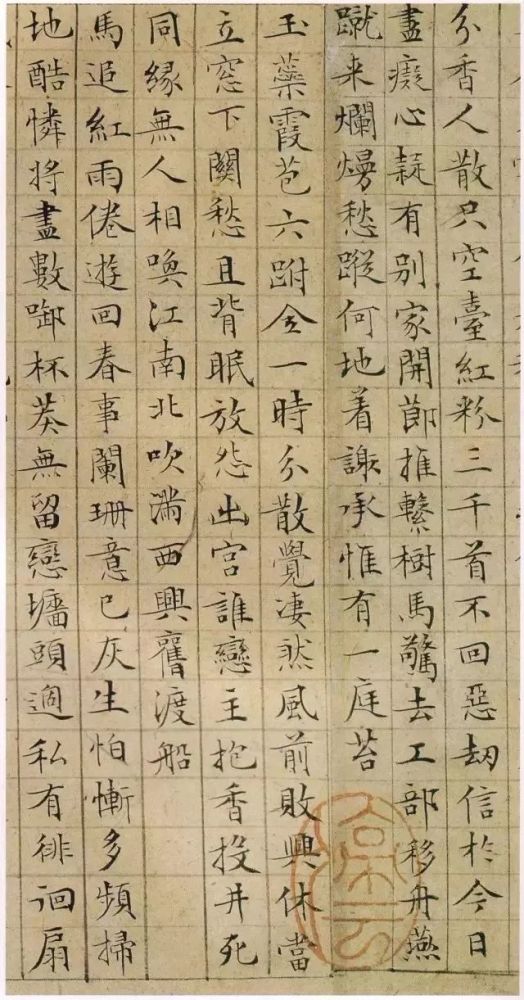 分香人散只空臺紅粉三千首不回惡劫信於今日
盡癡心疑有别家開節推繫樹馬驚去工部移舟燕
蹴来爛熳愁蹤何地着謝承惟有一庭苔
玉蘂霞苞六跗全一時分散覺凄然風前敗興休當
立窓下關愁且背眠放怨出宫誰戀主抱香投井死
同緣無人相喚江南北吹滿西興舊渡船
馬追紅雨倦遊回春事闌珊意已灰生怕慚多頻掃
地酷憐將盡數啣杯莽無留戀墻頭過私有徘徊扇